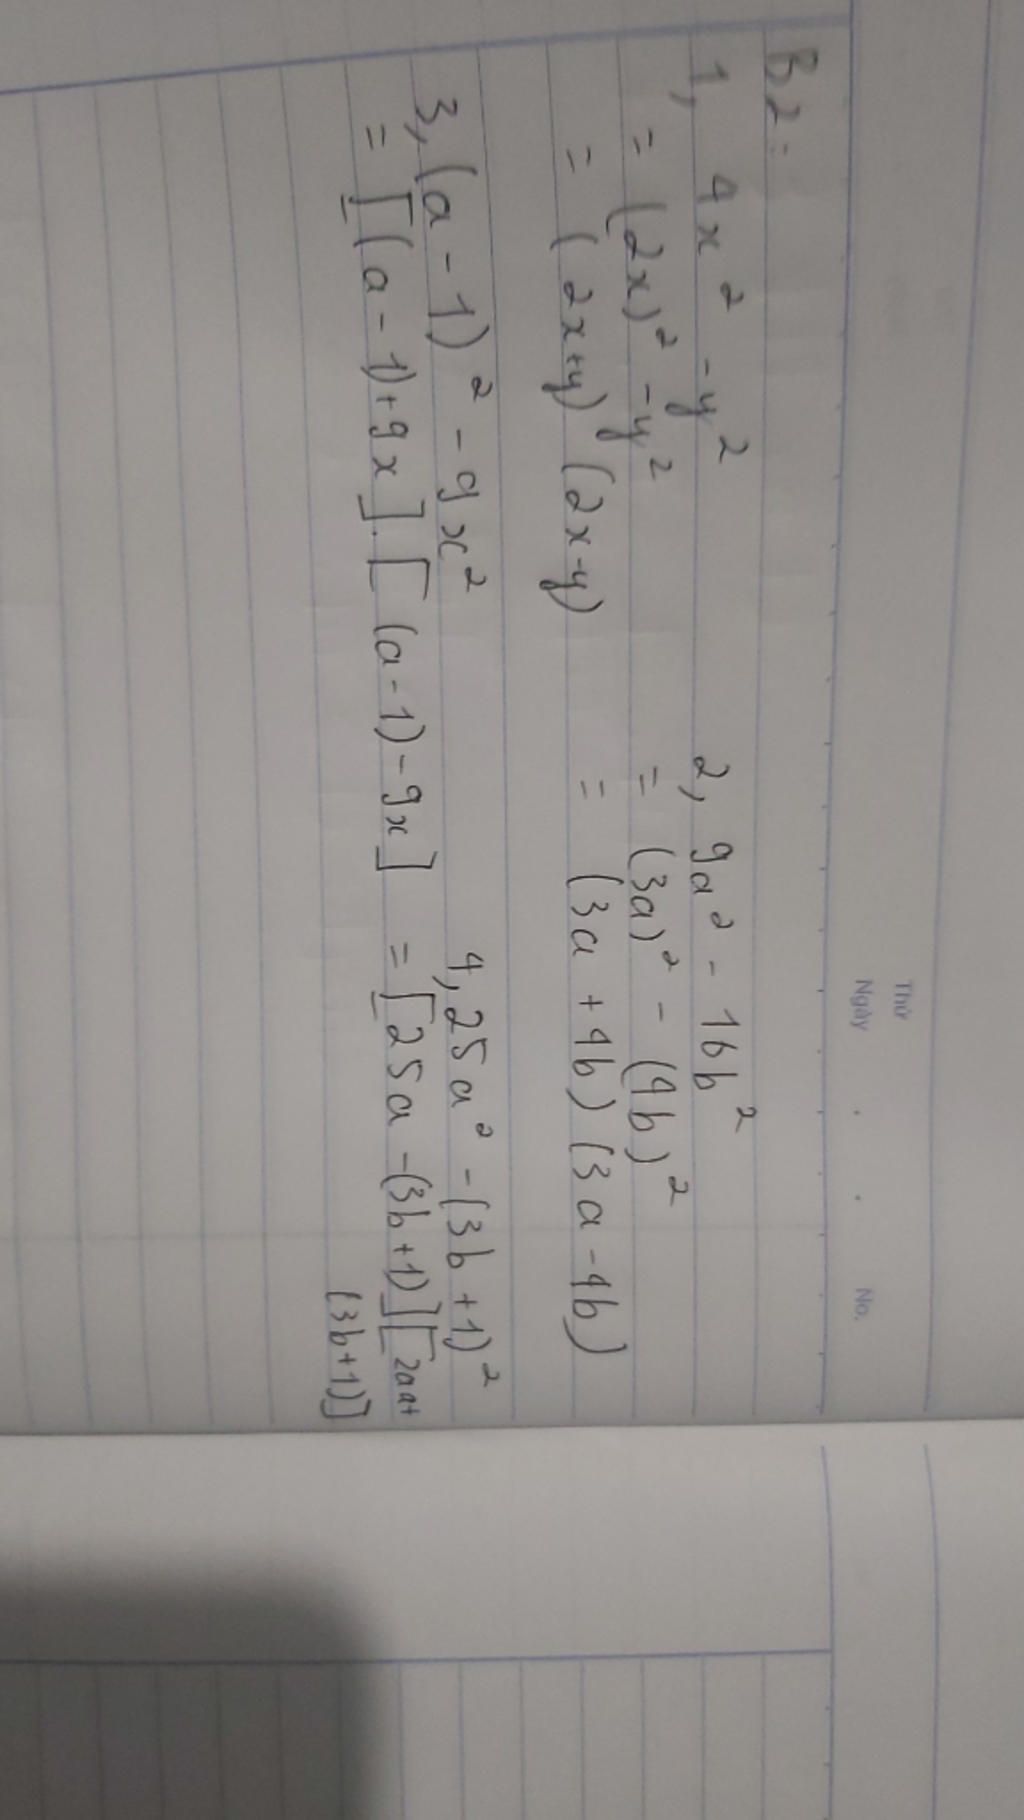 Thứ
Ngày . . No.
B2:
1, 4x² - y²
= (2x)² - y²
= (2x+y) (2x-y)
2, 9a² - 16b²
= (3a)² - (4b)²
= (3a + 4b) (3a - 4b)
3, (a - 1)² - 9x²
= [(a - 1) + 9x] . [(a - 1) - 9x]
4, 25a² - (3b + 1)²
= [25a - (3b + 1)] [2aa+
(3b+1)]